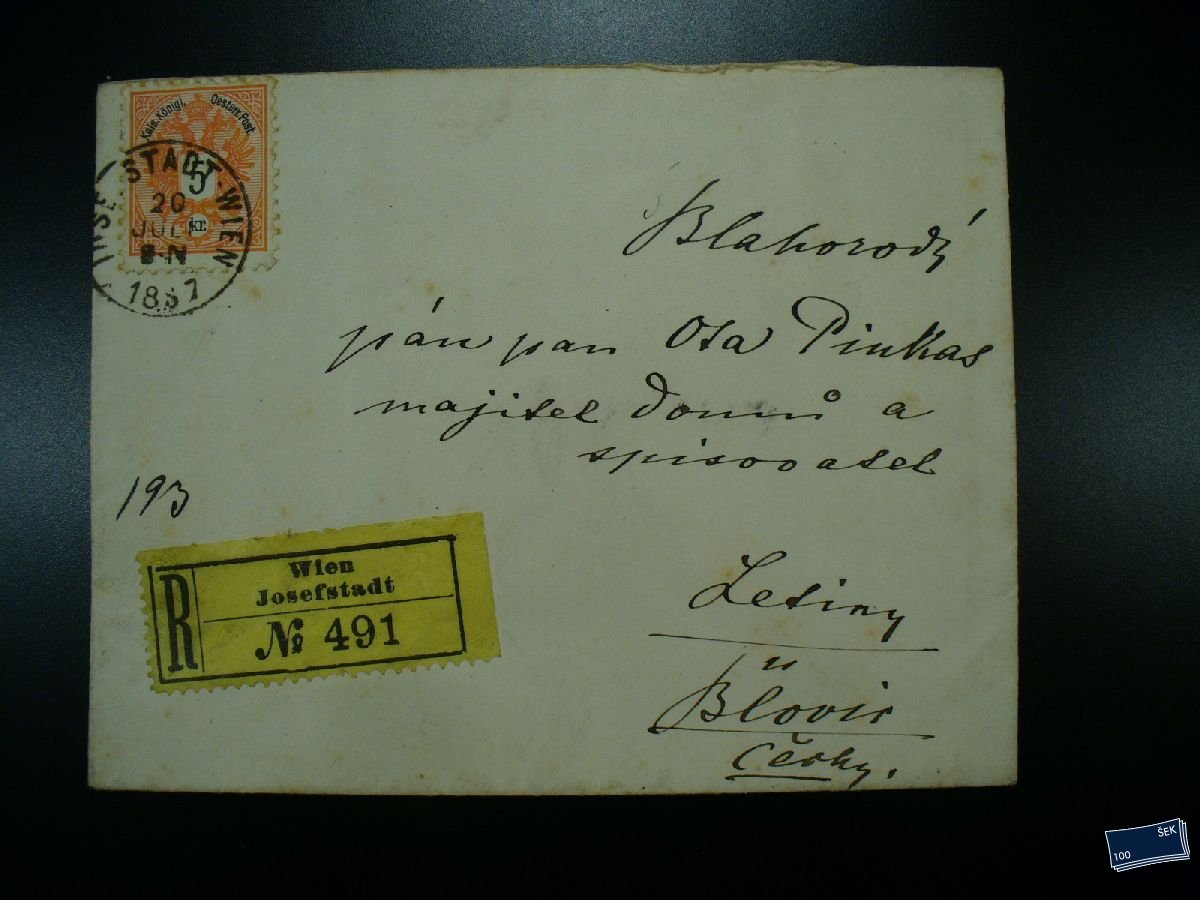 Kais. Königl. Oesterr. Post.
5
kr.
STADT WIEN
20
JULI
8·N
1887
Blahorodý
pán pan Ota Pinkas
majitel domů a
spisovatel
193
Wien
Josefstadt
R
№ 491
Letiny
u
Blovic
Čechy.
ŠEK
100